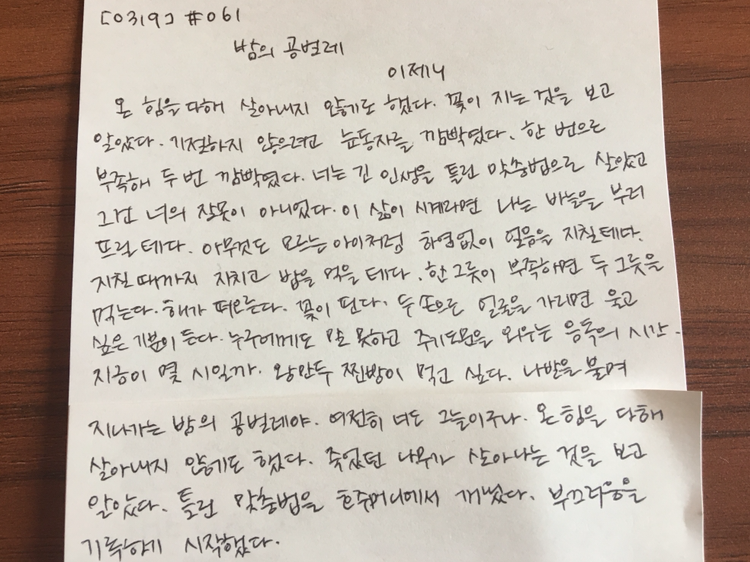 [0319] #061
밤의 공벌레
이제니
온 힘을 다해 살아내지 않기로 했다. 꽃이 지는 것을 보고
알았다. 기절하지 않으려고 눈동자를 깜빡였다. 한 번으로
부족해 두 번 깜빡였다. 너는 긴 인생을 틀린 맞춤법으로 살았고
그건 너의 잘못이 아니었다. 이 삶이 시계라면 나는 바늘을 부러
뜨릴 테다. 아무것도 모르는 아이처럼 하염없이 얼음을 지칠 테다.
지칠 때까지 지치고 밥을 먹을 테다. 한 그릇이 부족하면 두 그릇을
먹는다. 해가 떠오른다. 꽃이 핀다. 두 손으로 얼굴을 가리면 울고
싶은 기분이 든다. 누구에게도 말 못하고 주기도문을 외우는 음독의 시간.
지금이 몇 시일까. 왕만두 찐빵이 먹고 싶다. 나발을 불며
지나가는 밤의 공벌레야. 여전히 너도 그늘이구나. 온 힘을 다해
살아내지 않기로 했다. 죽었던 나무가 살아나는 것을 보고
알았다. 틀린 맞춤법을 호주머니에서 꺼냈다. 부끄러움을
기록하기 시작했다.